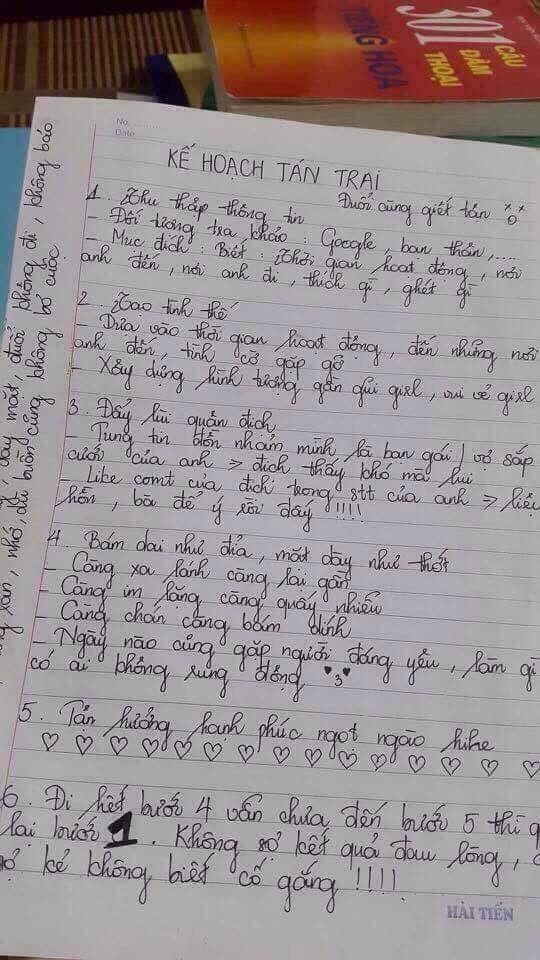 301 CÂU ĐÀM THOẠI
TIẾNG HOA
No.
Date
KẾ HOẠCH TÁN TRAI
1. Thu thập thông tin Đuổi cùng giết tận
- Đối tượng tra khảo: Google, bạn thân,....
- Mục đích: Biết: Thời gian hoạt động, nơi
anh đến, nơi anh đi, thích gì, ghét gì
2. Tạo tình thế
- Dựa vào thời gian hoạt động, đến những nơi
anh đến, tình cờ gặp gỡ
- Xây dựng hình tượng gần gũi girl, vui vẻ girl
3. Đẩy lùi quân địch
- Tung tin đồn nhảm mình là bạn gái / vợ sắp
cưới của anh => địch thấy khó mà lui
- Like comt của địch trong stt của anh => liều
hồn, bà để ý rồi đấy !!!!
4. Bám dai như đỉa, mặt dày như thớt
- Càng xa lánh càng lại gần
- Càng im lặng càng quấy nhiễu
- Càng chán càng bám dính
- Ngày nào cũng gặp người đáng yêu, làm gì
có ai không rung động
5. Tận hưởng hạnh phúc ngọt ngào hihe
♡ ♡ ♡ ♡ ♡ ♡ ♡ ♡ ♡ ♡ ♡ ♡ ♡ ♡ ♡
6. Đi hết bước 4 vẫn chưa đến bước 5 thì
lại bước 1. Không sợ kết quả đau lòng,
sợ kẻ không biết cố gắng !!!!
HẢI TIẾN
mặt, đuổi không đi, không báo
nhớ, dù buồn cũng không bỏ cuộc